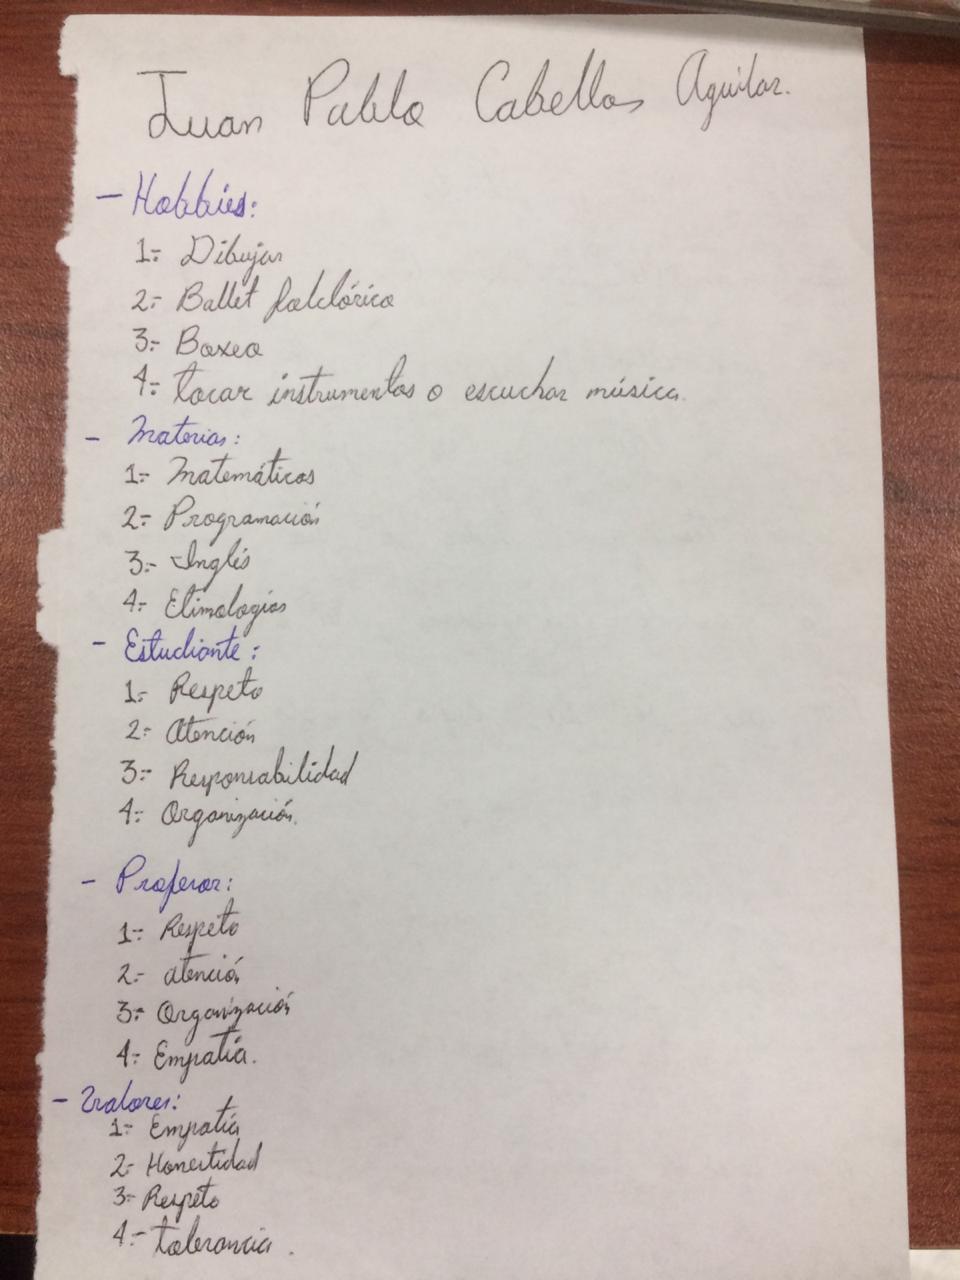 Juan Pablo Cabellos Aguilar.
- Hobbies:
1.- Dibujar
2.- Ballet folclórico
3.- Boxeo
4.- tocar instrumentos o escuchar música.
- Materias:
1.- Matemáticas
2.- Programación
3.- Inglés
4.- Etimologías
- Estudiante:
1.- Respeto
2.- Atención
3.- Responsabilidad
4.- Organización.
- Profesor:
1.- Respeto
2.- atención
3.- Organización
4.- Empatía.
- Valores:
1.- Empatía
2.- Honestidad
3.- Respeto
4.- tolerancia.